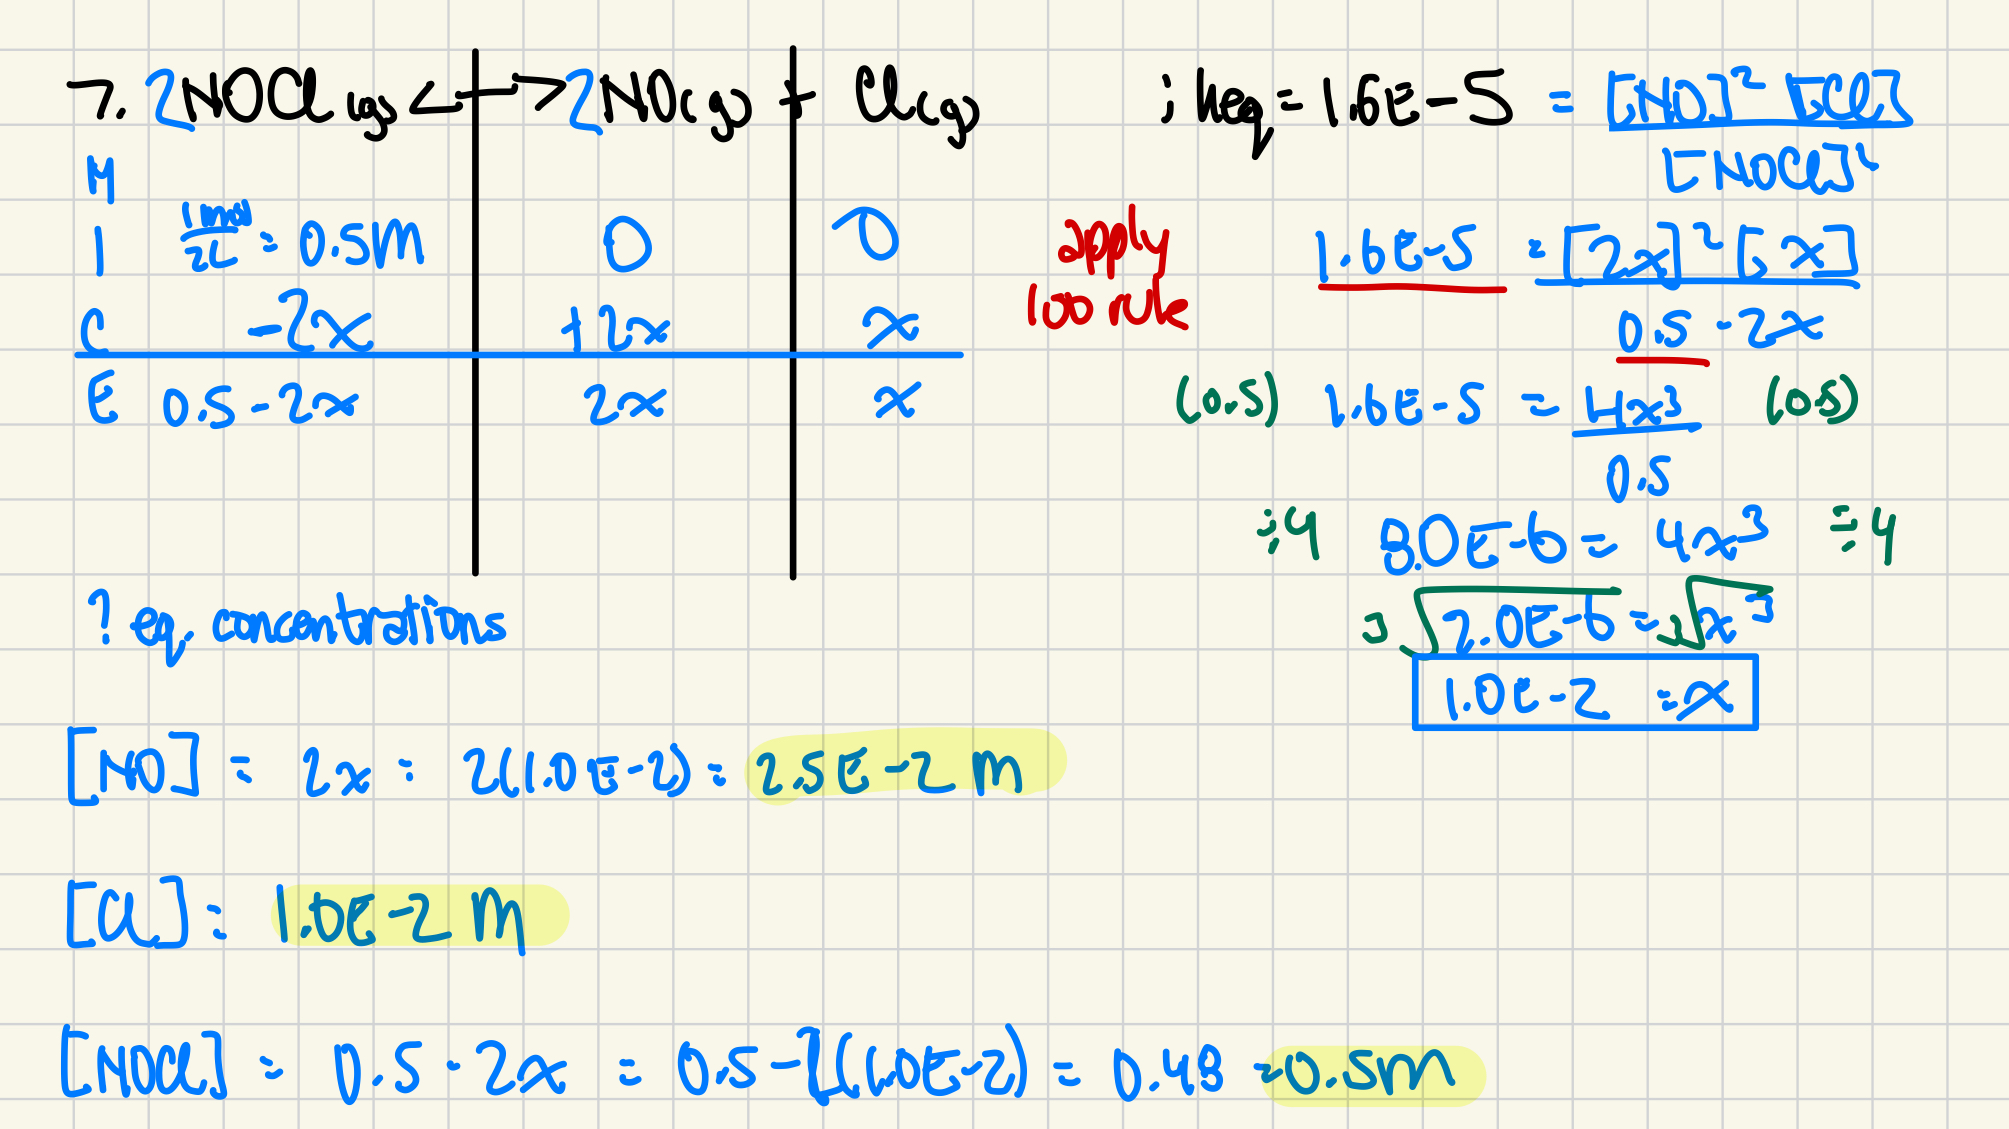 7. 2NOCl(g) <-> 2NO(g) + Cl(g) ; keq = 1.6E-5 = [NO]² [Cl] / [NOCl]²
M
I 1mol/2L = 0.5M 0 0
C -2x +2x x
E 0.5-2x 2x x
apply
100 rule
1.6E-5 = [2x]² [x] / 0.5-2x
(0.5) 1.6E-5 = 4x³/0.5 (0.5)
÷4 8.0E-6 = 4x³ ÷4
³√2.0E-6 = ³√x³
1.0E-2 = x
? eq. concentrations
[NO] = 2x = 2(1.0E-2) = 2.5E-2 M
[Cl] = 1.0E-2 M
[NOCl] = 0.5-2x = 0.5-2(1.0E-2) = 0.48 = 0.5M